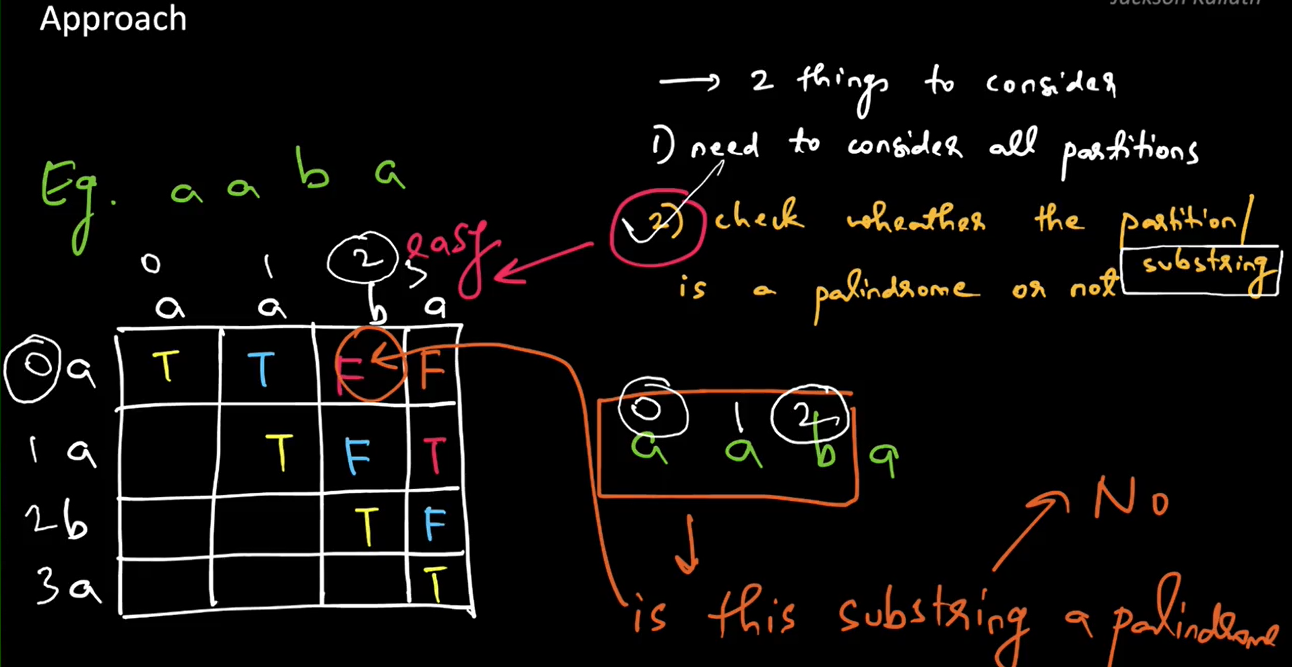 Approach
→ 2 things to consider
1) need to consider all partitions
2) check wheather the partition/
substring
is a palindrome or not
Eg. a a b a
easy
0 1 2 3
a a b a
0 a T T F F
1 a T F T
2 b T F
3 a T
0 1 2
a a b a
No
is this substring a palindrome